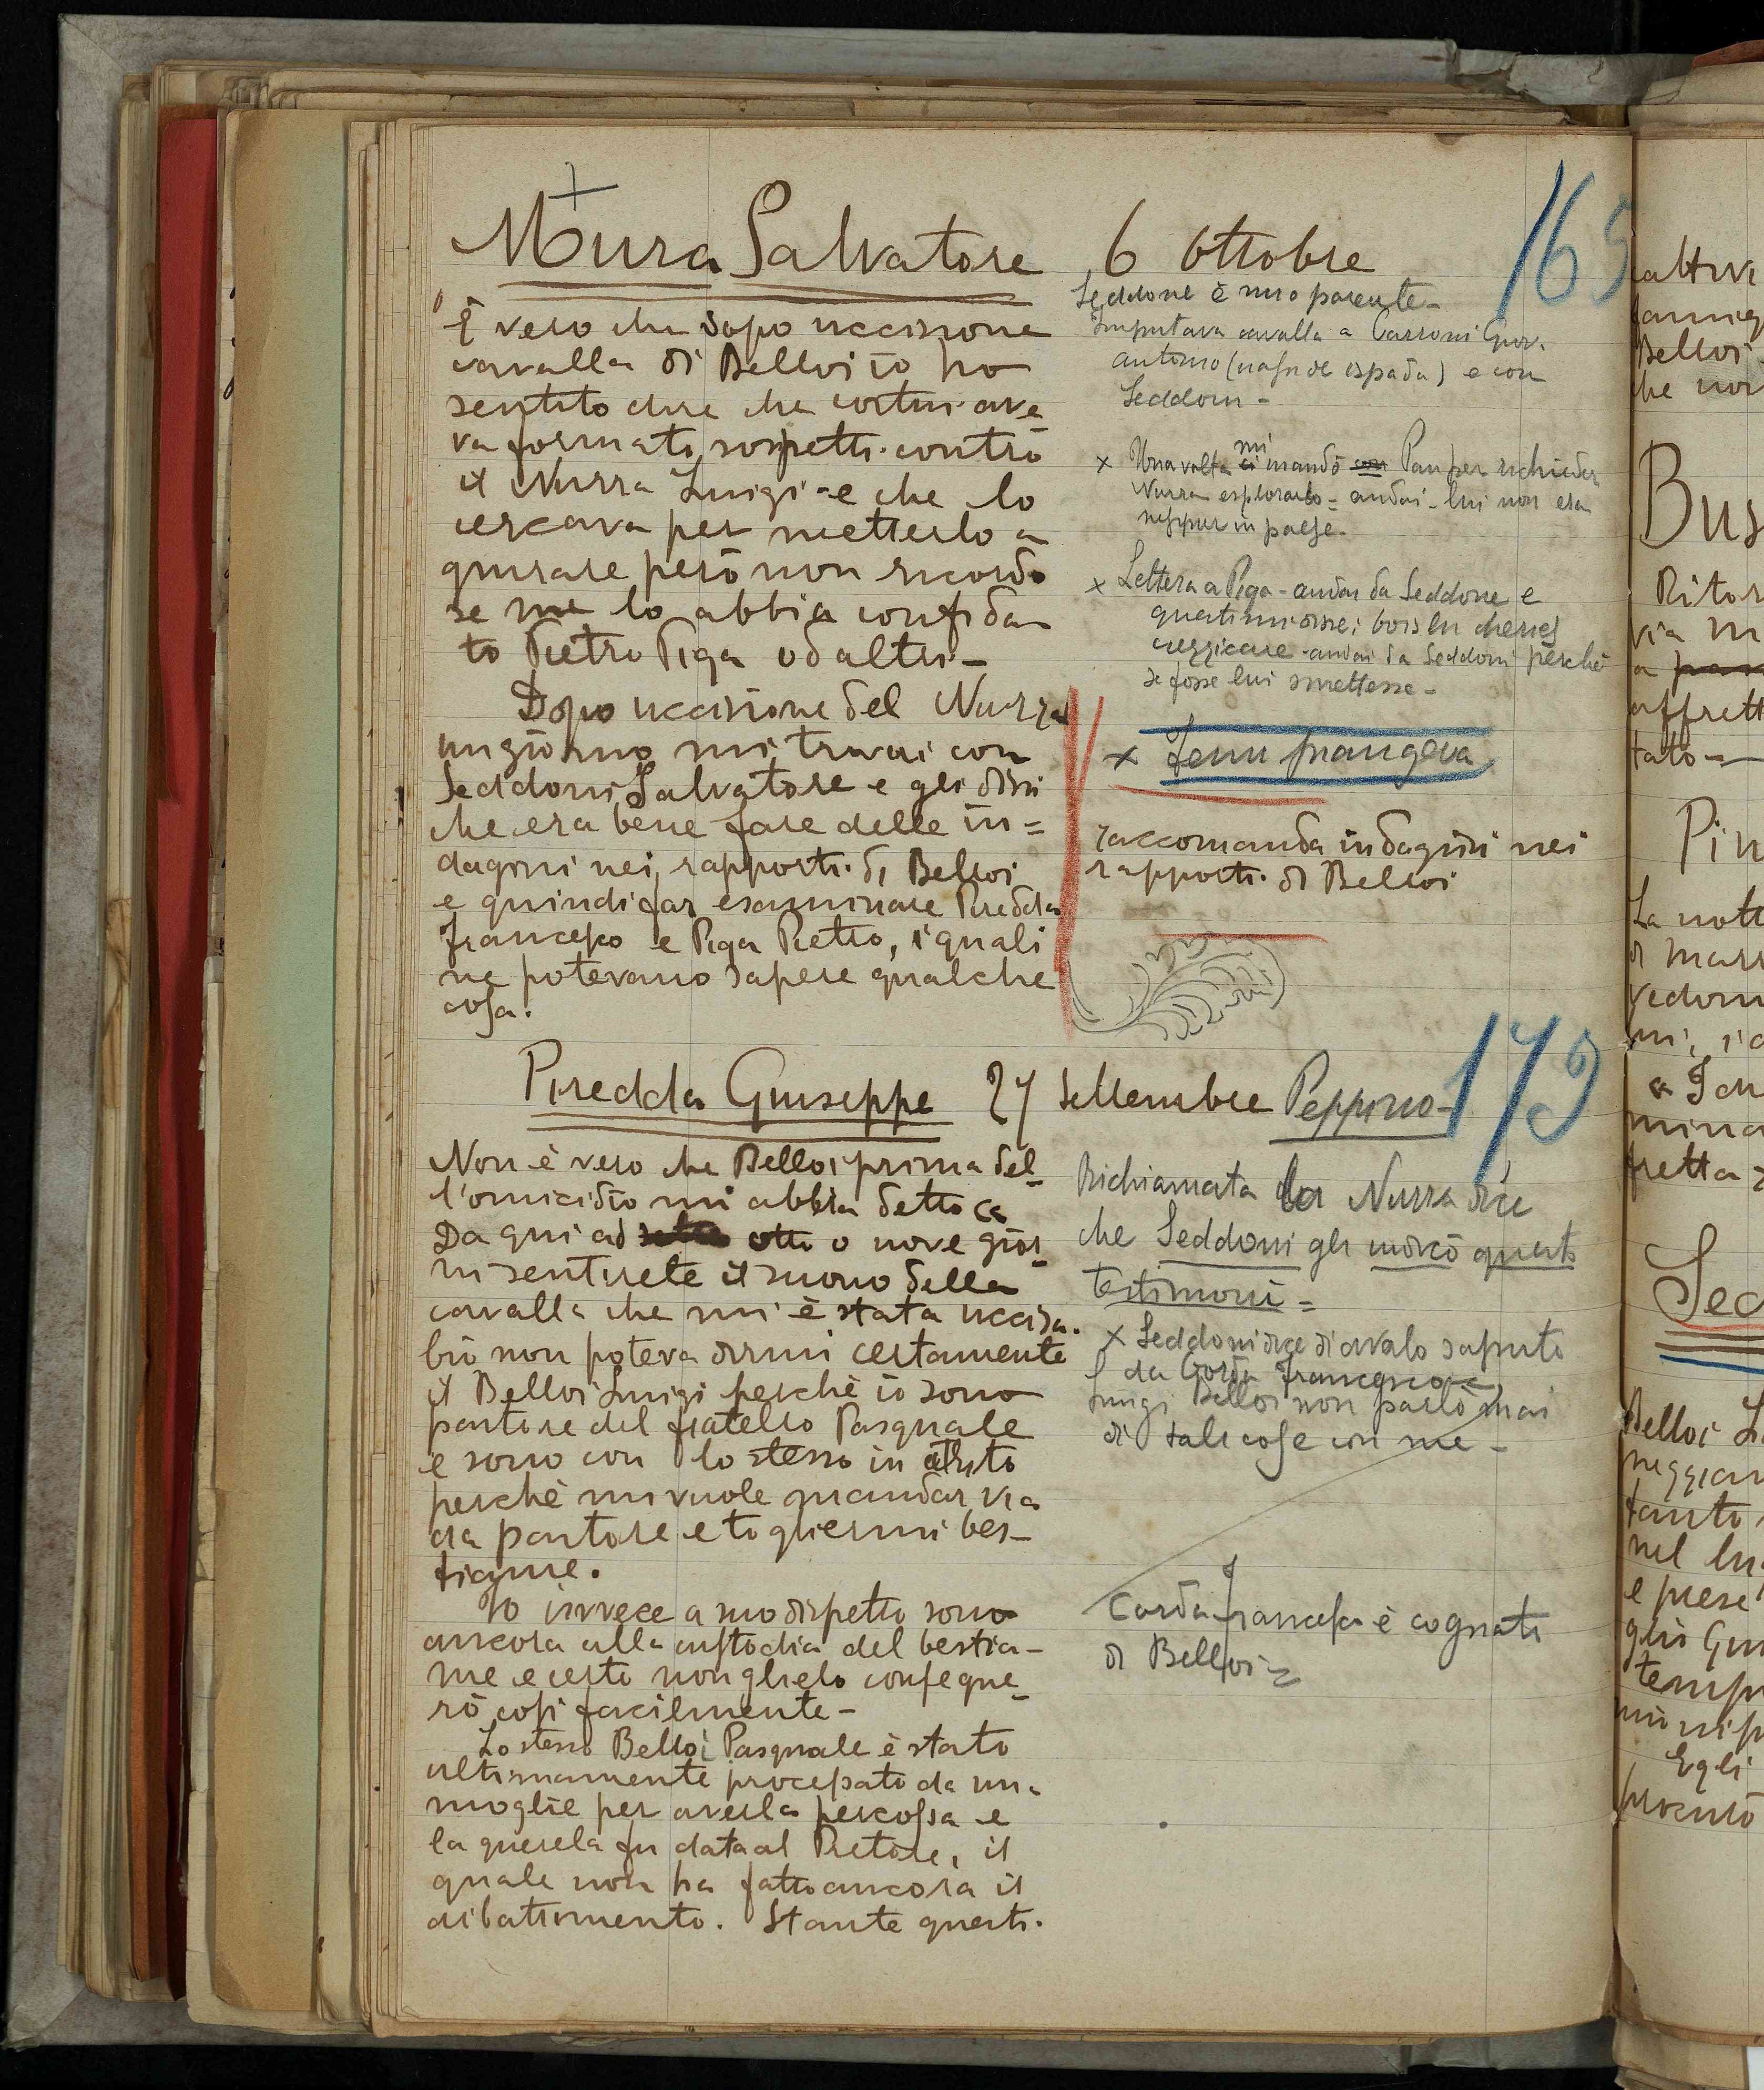 Mura Salvatore 6 Ottobre 165
È vero che dopo uccisione
cavalla di Belloi io ho
sentito dire che costui ave
va formato sospetti contro
il Nurra Luigi - e che lo
cercava per metterlo a
giurare però non ricordo
se me lo abbia confida
to Pietro Piga od altri -
Dopo uccisione del Nurra
un giorno mi trovai con
Seddoni Salvatore e gli dissi
che era bene fare delle in=
dagini nei rapporti di Belloi
e quindi far esaminare Piredda
Francesco e Piga Pietro, i quali
ne potevano sapere qualche
cosa.
Seddone è mio parente -
Imputava cavalla a Carroni Giov.
Antonio ( espada) e con
Seddoni -
x Una volta ci mi mandò con Pau per richieder
Nurra esplorarlo - andai - lui non era
neppur in paese -
x Lettera a Piga - andai da Seddone e
questi mi disse:
andai da Seddoni perché
se fosse lui smettesse -
x Fenu piangeva
raccomanda indagini nei
rapporti di Belloi
Piredda Giuseppe 27 Settembre Peppino - 179
Non è vero che Belloi prima del
l'omicidio mi abbia detto ca
Da qui ad otto o nove gior
ni sentirete il suono della
cavalla che mi è stata uccisa.
Ciò non poteva dirmi certamente
il Belloi Luigi perchè io sono
pastore del fratello Pasquale
e sono con lo stesso in attrito
perchè mi vuole mandar via
da pastore e togliermi bes-
tiame.
Io invece a suo dispetto sono
ancora alla custodia del bestia-
me e certo non glielo consegne
rò così facilmente -
Lo stesso Belloi Pasquale è stato
ultimamente processato da mia
moglie per averla percossa e
la querela fu data al Pretore, il
quale non ha fatto ancora il
dibattimento. Stante questi
Richiamata la Nurra dice
che Seddoni gli indicò questo
testimoni =
x Seddoni dice di averlo saputo
da Corda Francesco e
Luigi Belloi non parlò mai
di tali cose con me -
Corda Francesco è cognato
di Belloi